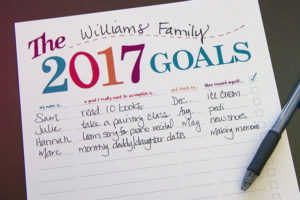 The Williams Family
2017 GOALS
my name is... a goal I really want to accomplish is... and finish by... then reward myself... ✓
Sam read 10 books Dec. ice cream
Julie take a painting class Aug pedi
Hannah learn song for piano recital may new shoes
Marc monthly daddy/daughter dates making memories